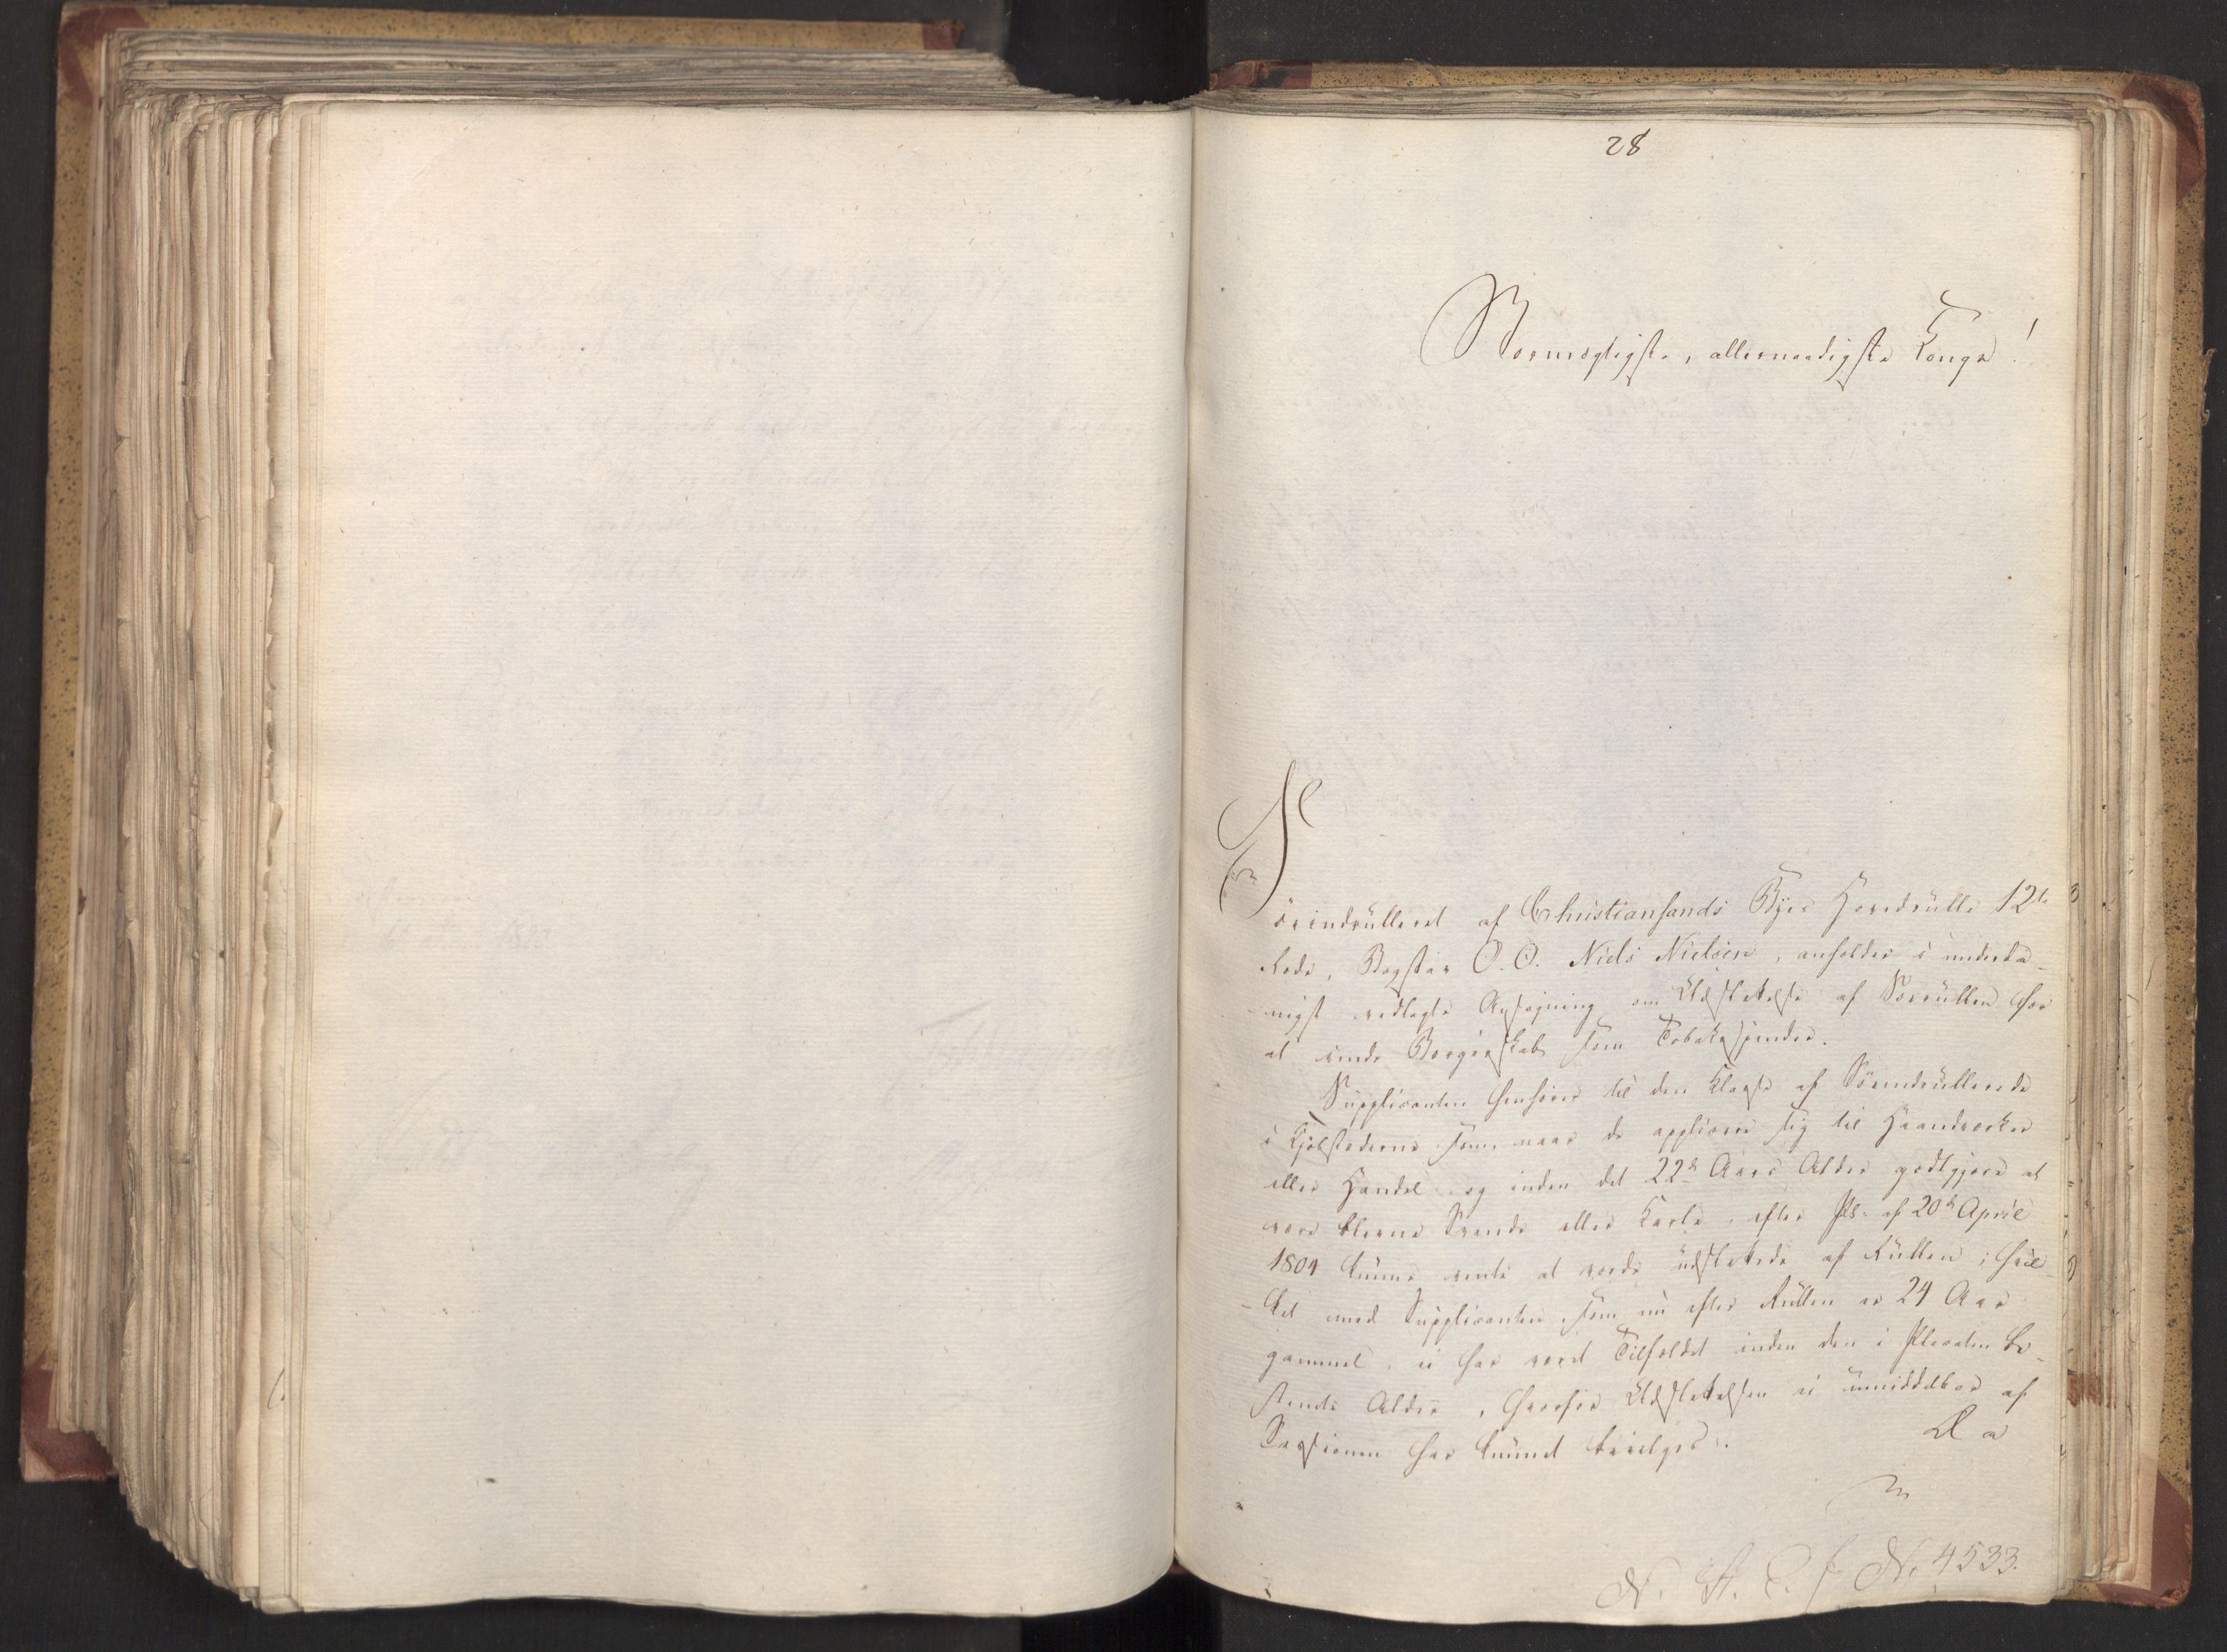 28
Stormægtigste, allernaadigste Konge!
Søeindrulleret af Christiansands Byes Hovedrulle 12te
Rode, Bogstav O. O. Niels Nielsen, anholder i underda-
nigst vedlagte Ansøgning om Udslettelse af Søerullen for
at vinde Borgerskab som Tobakspinder.
Supplicanten henhører til den Klasse af Søeindrullerede
i Kjøbstæderne som, naar de applicere sig til Haandværker
eller Handel og inden det 22de Aars Alder godtgjøre at
være blevne Svende eller Karle, efter Pl. af 20de April
1804 kunne vente at vorde udslettede af Rullen; hvil-
ket med Supplicanten, som nu efter Rullen er 24 Aar
gammel, ei har været Tilfældet inden den i Placaten be-
stemte Alder, hvorfor Udslettelsen ei umiddelbar af
Sessionen har kunnet bevilges.
Da
N. 4533.